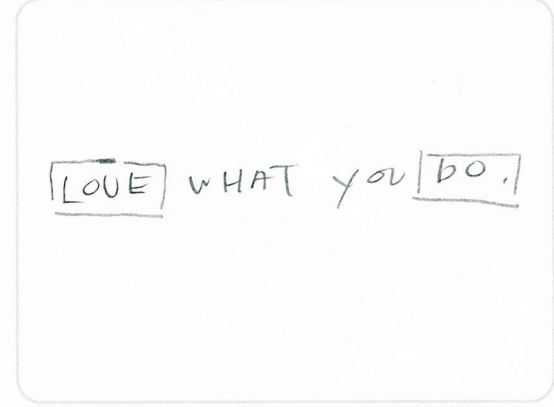 LOVE WHAT YOU DO.